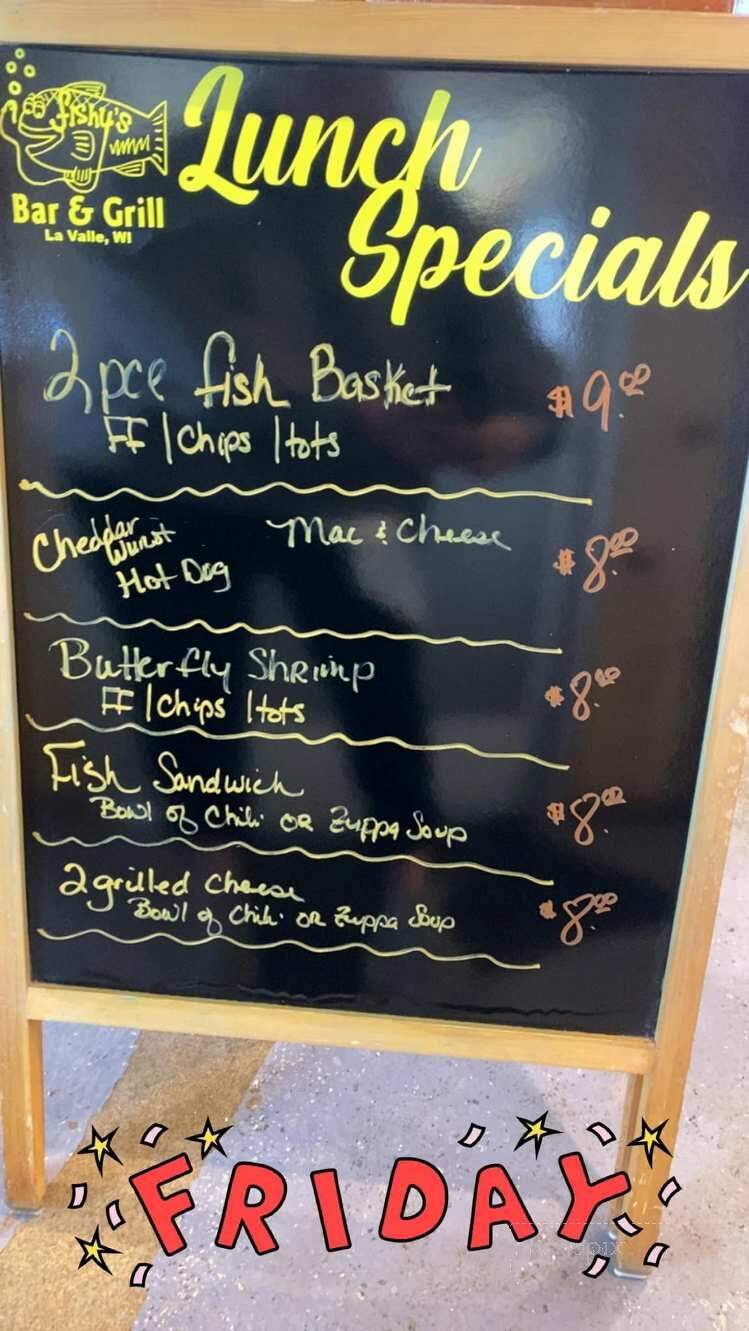 fishy's
Bar & Grill
La Valle, WI
Lunch
Specials
2 pce fish Basket $9.00
FF | Chips | tots
Cheddar Wurst Mac & Cheese $8.00
Hot Dog
Butterfly Shrimp $8.00
FF | Chips | tots
Fish Sandwich $8.00
Bowl of Chili OR Zuppa Soup
2 grilled cheese $8.00
Bowl of Chili OR Zuppa Soup
FRIDAY